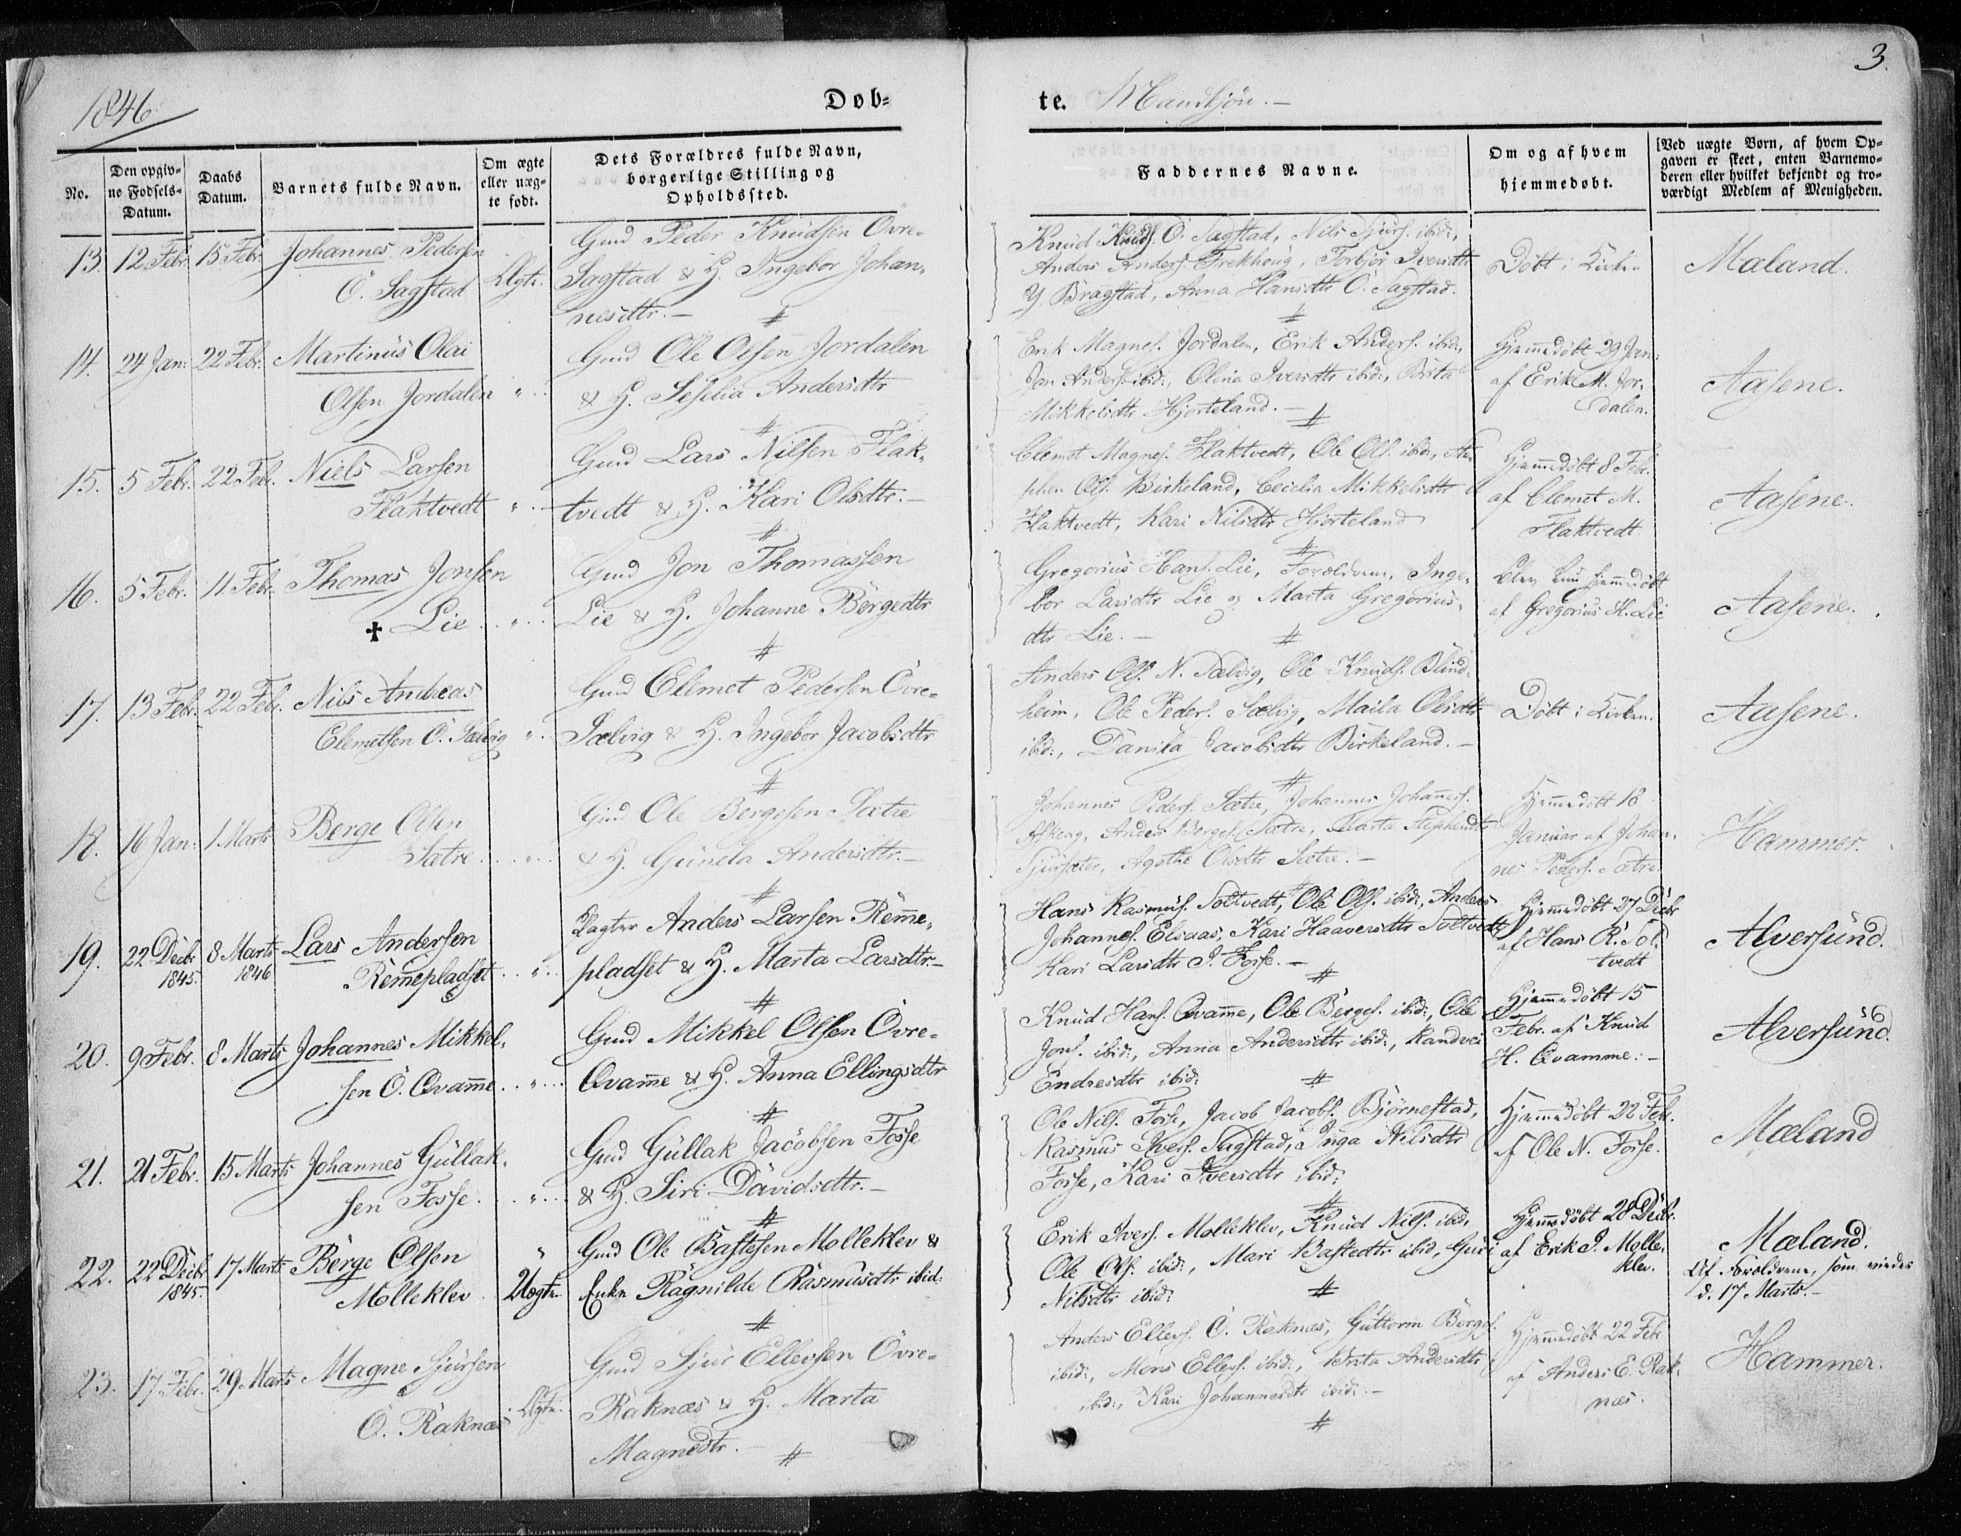 1846
Døb-
te. Mandkjön. -
3.
No.
Den opgiv-
ne Fødsels-
Datum.
Daabs
Datum.
Barnets fulde Navn.
Om ægte
eller uæg-
te født.
Dets Forældres fulde Navn,
borgerlige Stilling og
Opholdssted.
Faddernes Navne.
Om og af hvem
hjemmedøbt.
Ved uægte Børn, af hvem Op-
gaven er skeet, enten Barnemo-
deren eller hvilket bekjendt og tro-
værdigt Medlem af Menigheden.
13. 12 Febr. 15 Febr. Johannes Pedersen
Ö. Sagstad
Ægte.
Gmd Peder Knudsen Övre-
Sagstad & H. Ingebor Johan-
nesdtr. -
Knud Knuds. Ö. Sagstad, Nils Sjurs. ibid:,
Anders Anders. Frekhoug, Torbjör Iversdtr
Y. Bragstad, Anna Hansdtr Ö. Sagstad.
Döbt i Kirken
Mæland.
14. 24 Jan: 22 Febr. Martinus Olai
Olsen Jordalen
Gmd Ole Olsen Jordalen
& H. Seselia Andersdtr
Erik Magnes. Jordalen, Erik Anders. ibid:,
Jon Anders. ibid:, Olina Iversdtr ibid:, Brita
Mikkelsdtr Hjorteland. -
Hjemmedöbt 29 Jan:
af Erik M. Jor-
dalen.
Aasene.
15. 5 Febr. 22 Febr. Niels Larsen
Flaktvedt
Gmd Lars Nilsen Flak-
tvedt & H. Kari Olsdtr. -
Clemet Magnes. Flaktvedt, Ole Ols. ibid:, Ste-
phen Ols. Birkeland, Cecilia Mikkelsdtr
Flaktvedt, Kari Nilsdtr Hjorteland
Hjemmedöbt 8 Febr.
af Clemet M.
Flaktvedt.
Aasene.
16. 5 Febr. 11 Febr. Thomas Jonsen
✝ Lie
Gmd Jon Thomassen
Lie & H. Johanne Börgedtr
Gregorius Hans. Lie, Forældrene, Inge-
bor Larsdtr Lie og Marta Gregorius-
dtr Lie. -
Blev kun hjemmedöbt
af Gregorius H. Lie
Aasene.
17. 13 Febr. 22 Febr. Nils Andreas
Clemetsen Ö. Sælvig
Gmd Clemet Pedersen Övre-
Sælvig & H. Ingebor Jacobsdtr
Anders Ols. N. Sælvig, Ole Knuds. Blind-
heim, Ole Peders. Sælvig, Maila Olsdtr
ibid:, Danika Jacobsdtr Birkeland. -
Döbt i Kirken.
Aasene.
18. 16 Jan: 1 Marts Berge Olsen
Sætre
Gmd Ole Bergesen Sætre
& H. Gunela Andersdtr. -
Johannes Peders. Sætre, Johannes Johannes.
Askeug, Anders Berges. Sætre, Marta Stephensdtr
Sjursæter, Agathe Olsdtr Sætre. -
Hjemmedöbt 18
Januar af Johan-
nes Peders. Sætre.
Hammer.
19. 22 Decbr 1845. 8 Marts 1846 Lars Andersen
Remepladset
Plagter Anders Larsen Reme-
pladset & H. Marta Larsdtr. -
Hans Rasmus. Soltvedt, Ole Ols. ibid:, Anders
Johannes. Elsaas, Kari Haaversdtr Soltvedt
Kari Larsdtr I. Fosse. -
Hjemmedöbt 27 Decbr
af Hans R. Sol-
tvedt
Alversund.
20. 9 Febr. 8 Marts Johannes Mikkel-
sen Ö. Qvamme
Gmd Mikkel Olsen Övre-
Qvamme & H. Anna Ellingsdtr
Knud Hans. Qvamme, Ole Berges. ibid:, Ole
Jons. ibid:, Anna Andersdtr ibid:, Randvei
Endresdtr ibid:
Hjemmedöbt 15
Febr. af Knud
H. Qvamme. -
Alversund.
21. 21 Febr. 15 Marts Johannes Gullak-
sen Fosse
Gmd Gullak Jacobsen Fosse
& H. Siri Davidsdtr. -
Ole Nils. Fosse, Jacob Jacobs. Björnestad,
Rasmus Ivers. Sagstad, Inga Nilsdtr
Fosse, Kari Iversdtr ibid:
Hjemmedöbt 22 Febr.
af Ole N. Fosse.
Mæland
22. 22 Decbr 1845. 17 Marts Berge Olsen
Molleklev
Uægte
Gmd Ole Bastesen Molleklev &
Enke Ragnilde Rasmusdtr ibid:
Erik Ivers. Molleklev, Knud Nils. ibid:
Ole Ols. ibid:, Mari Bastedtr ibid, Guri
Nilsdtr ibid:
Hjemmedöbt 28 Decbr.
af Erik I. Molle-
klev.
Mæland.
Af Forældrene, som viedes
d. 17 Marts. -
23. 17 Febr. 29 Marts Magne Sjursen
Ö. Raknæs
Ægte.
Gmd Sjur Ellevsen Övre-
Raknæs & H. Marta
Magnedtr. -
Anders Ellevs. Ö. Raknæs, Guttorm Börges.
ibid:, Mons Ellevs. ibid:, Brita Andersdtr
ibid:, Kari Johannesdtr ibid: -
Hjemmedöbt 22 Febr
af Anders E. Rak-
næs.
Hammer.